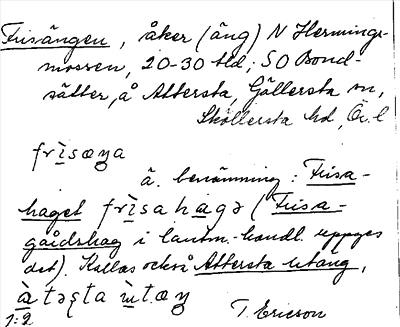 Frisängen, åker (äng) N Hermings-
mossen, 20-30 tld; SO Bond-
sätter, å Attersta, Gällersta sn,
Sköllersta hd, Ör. l
frìsæŋa
ä. benämning: Frisa-
haget frìsahagə (Frisa-
gärdshag i lantm.-handl. uppges
det). Kallas också Attersta utäng,
àtəʂta ùt.æŋ
1:2 T. Ericson